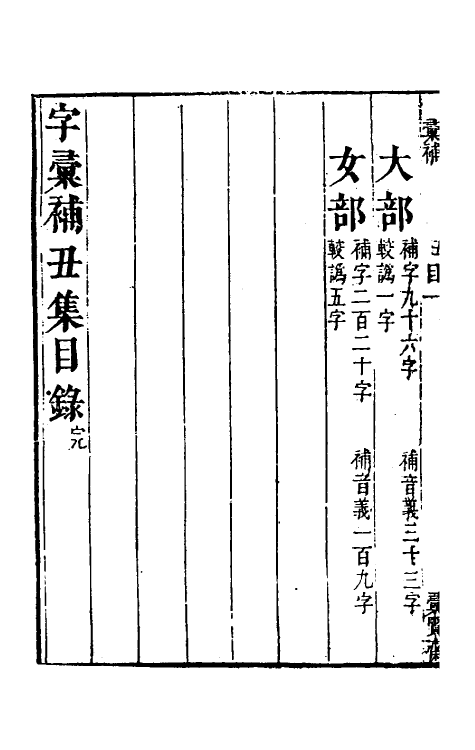 彙補
丑目一
大部
補字九十六字 補音義三十三字
較譌一字
女部
補字二百二十字 補音義一百九字
較譌五字
字彙補丑集目錄完